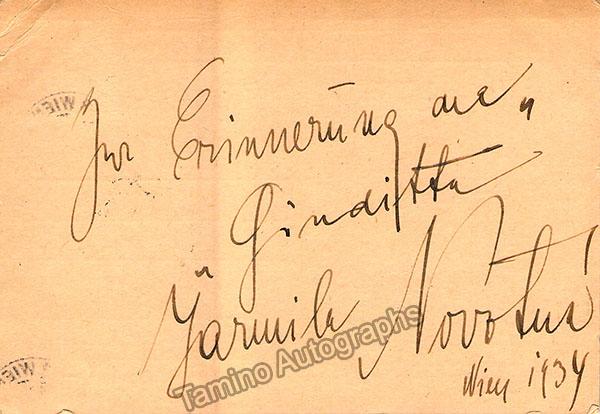 Zur Erinnerung an „
Giuditta "
Jarmila Novotná
Tamino Autographs
Wien 1934
WIEN
WIEN